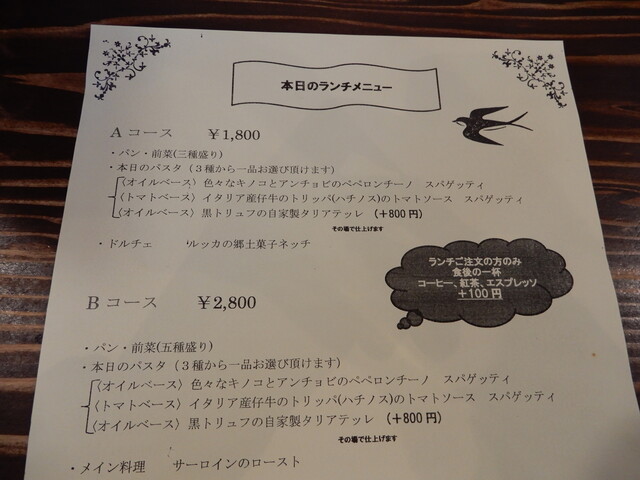 本日のランチメニュー
A コース ￥1,800
・パン・前菜(三種盛り)
・本日のパスタ（３種から一品お選び頂けます）
〈オイルベース〉色々なキノコとアンチョビのペペロンチーノ スパゲッティ
〈トマトベース〉イタリア産仔牛のトリッパ(ハチノス)のトマトソース スパゲッティ
〈オイルベース〉黒トリュフの自家製タリアテッレ （＋800円）
その場で仕上げます
・ドルチェ ルッカの郷土菓子ネッチ
ランチご注文の方のみ
食後の一杯
コーヒー、紅茶、エスプレッソ
＋100円
B コース ￥2,800
・パン・前菜(五種盛り)
・本日のパスタ（３種から一品お選び頂けます）
〈オイルベース〉色々なキノコとアンチョビのペペロンチーノ スパゲッティ
〈トマトベース〉イタリア産仔牛のトリッパ(ハチノス)のトマトソース スパゲッティ
〈オイルベース〉黒トリュフの自家製タリアテッレ （＋800円）
その場で仕上げます
・メイン料理 サーロインのロースト